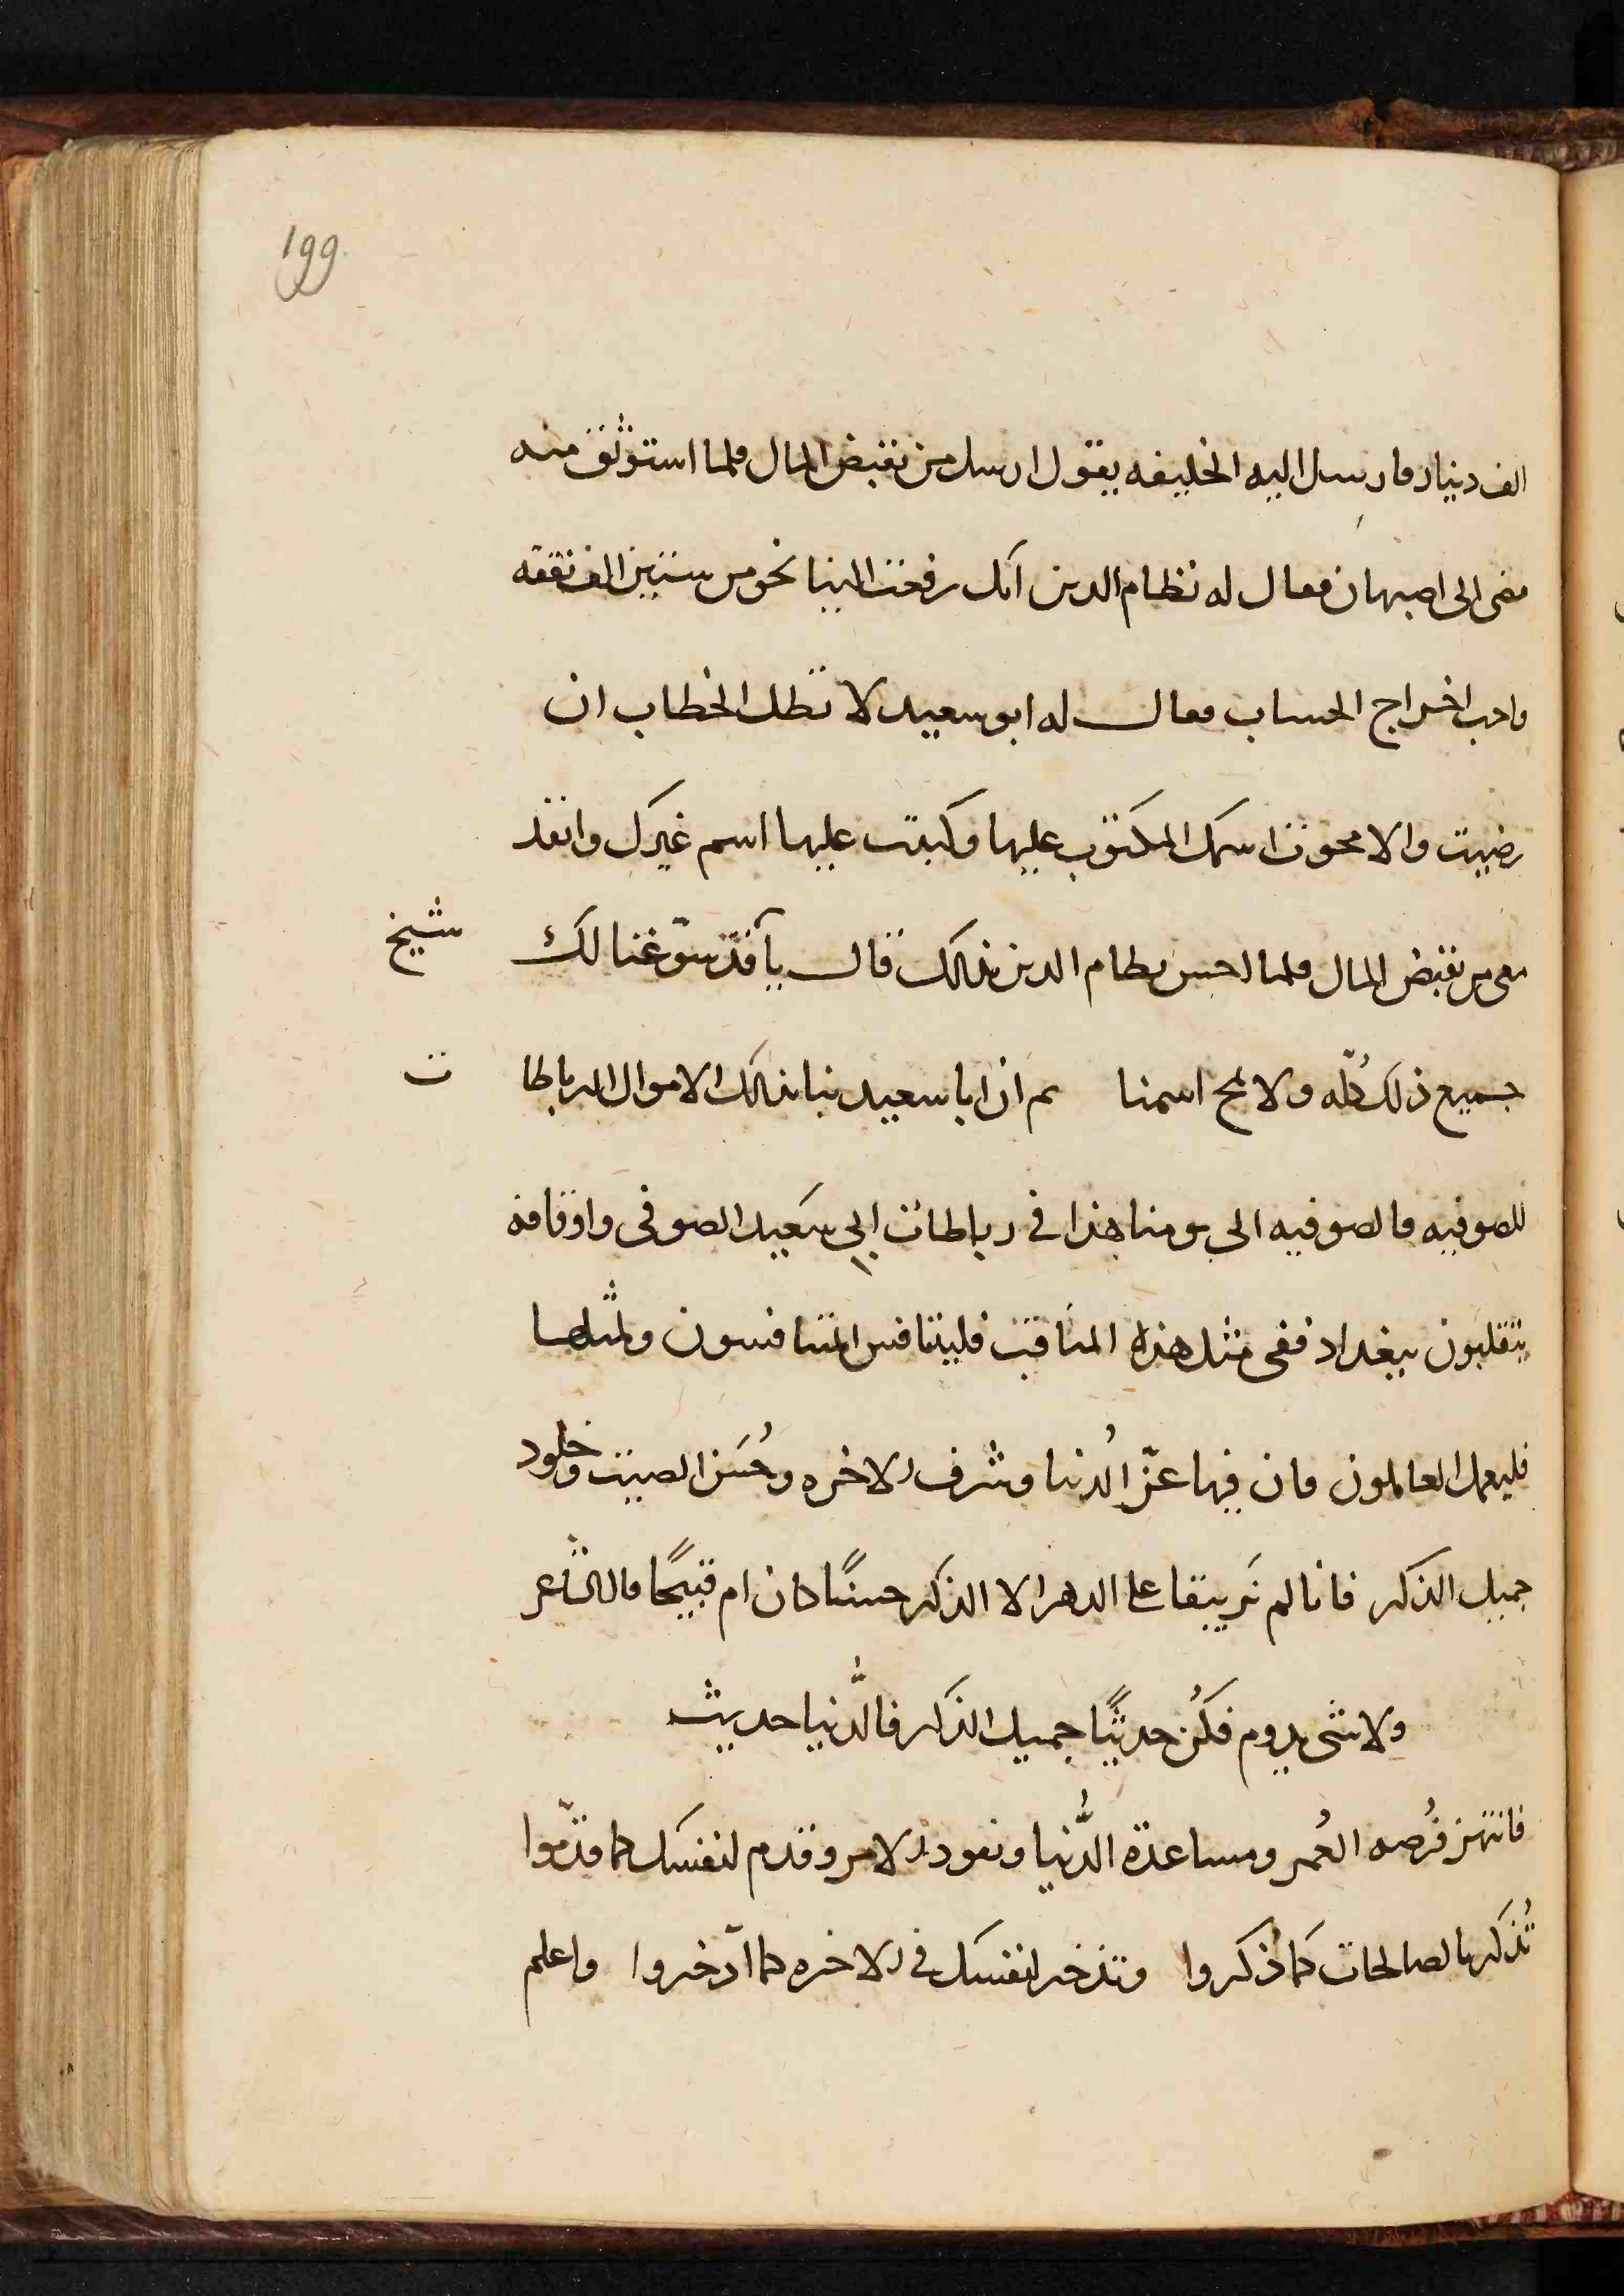 199
الف دينار فارسل اليه الخليفه يقول ارسل من يقبض المال فلما استوثق منه
مضى الى اصبهان فقال له نظام الدين انك رفعت الينا نحو من ستين الف نفقه
واحب اخراج الحساب فقال له ابو سعيد لا تطل الخطاب ان
رضيت والا محوت اسمك المكتوب عليها وكتبت عليها اسم غيرك وانفذ
معى من يقبض المال فلما احس نظام الدين بذلك قال يا قد سوّغنا لك شيخ
جميع ذلك كلّه ولا تمح اسمنا ثم ان ابا سعيد بنا بذلك الاموال الرباطا ت
للصوفيه فالصوفيه الى يومنا هذا في رباطات ابي سعيد الصوفى واوقافه
يتقلبون ببغداد ففى مثل هذه المناقب فليتنافس المتنافسون ولمثلها
فليعمل العاملون فان فيها عزّ الدُنيا وشرف الاخره وحُسَن الصيت وخلود
جميل الذكر فانا لم نَر يبقا على الدهر الا الذكر حسنًا كان ام قبيحًا قال الشاعر
ولا شى يدوم فكُن حديثًا جميل الذكر فالدُّنيا حديث
فانتهز فُرصه العُمر ومساعدة الدُّنيا ونفود الامر وقدم لنفسك كما قدّموا
تُذكر بالصالحات كما ذُكروا وتذخر لنفسك في الاخره كما ادّخروا واعلم